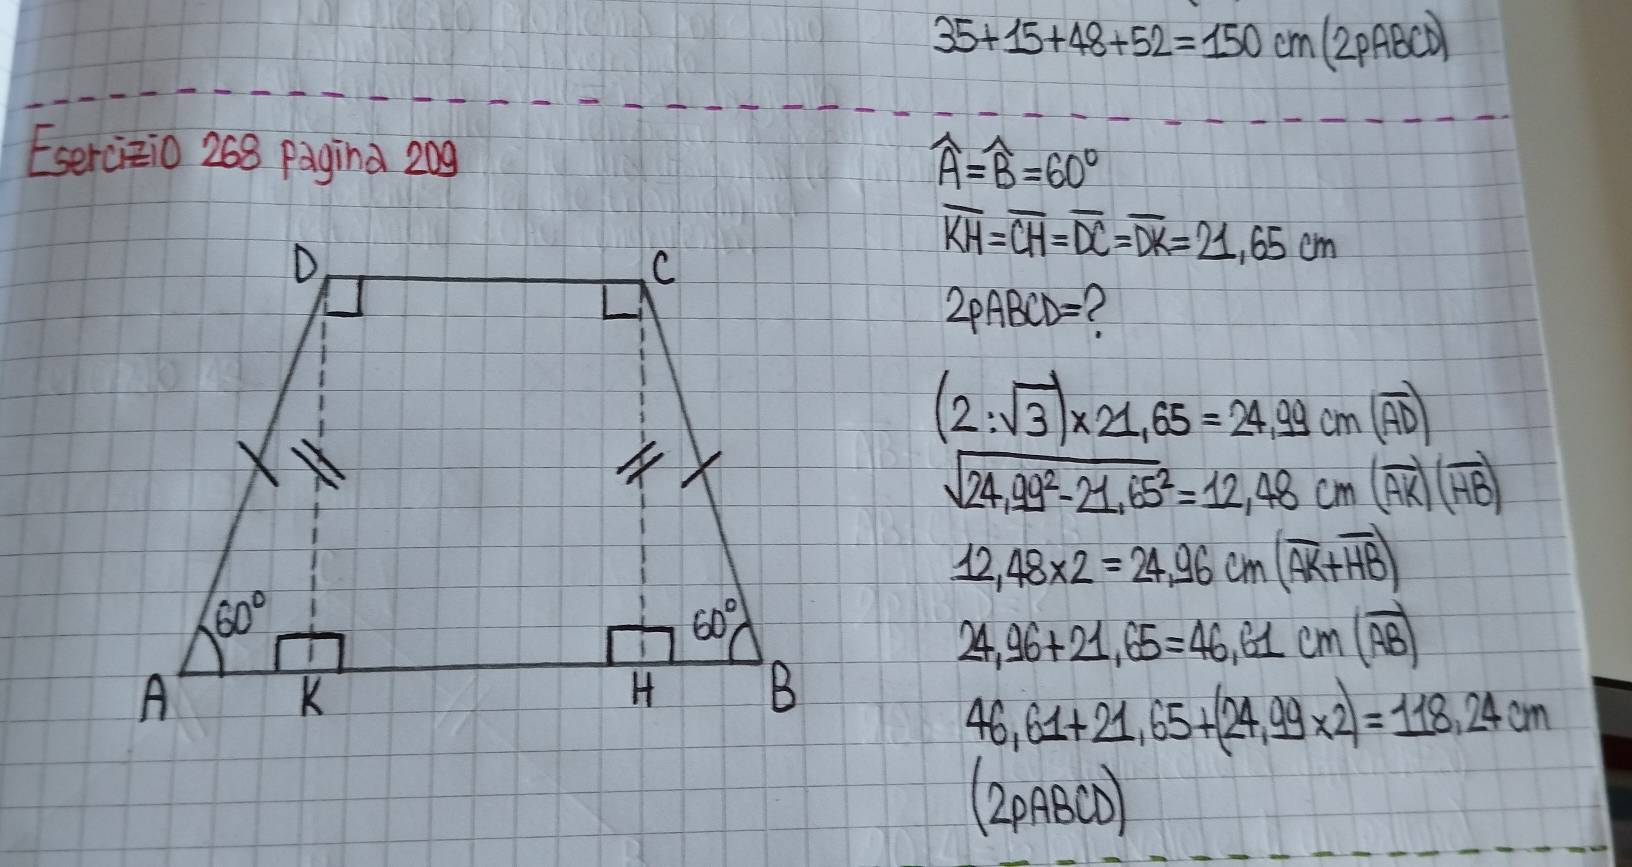 35+15+48+52=150 cm (2pABCD)
Esercizio 268 pagina 209
Â=B̂=60°
K̅H̅=C̅H̅=D̅C̅=D̅K̅=21,65 cm
2pABCD=?
(2:√3)×21,65=24,99 cm (A̅D̅)
√24,99²-21,65²=12,48 cm (A̅K̅)(H̅B̅)
12,48×2=24,96 cm (A̅K̅+H̅B̅)
24,96+21,65=46,61 cm (A̅B̅)
46,61+21,65+(24,99×2)=118,24 cm
(2pABCD)
D C
60° 60°
A K H B